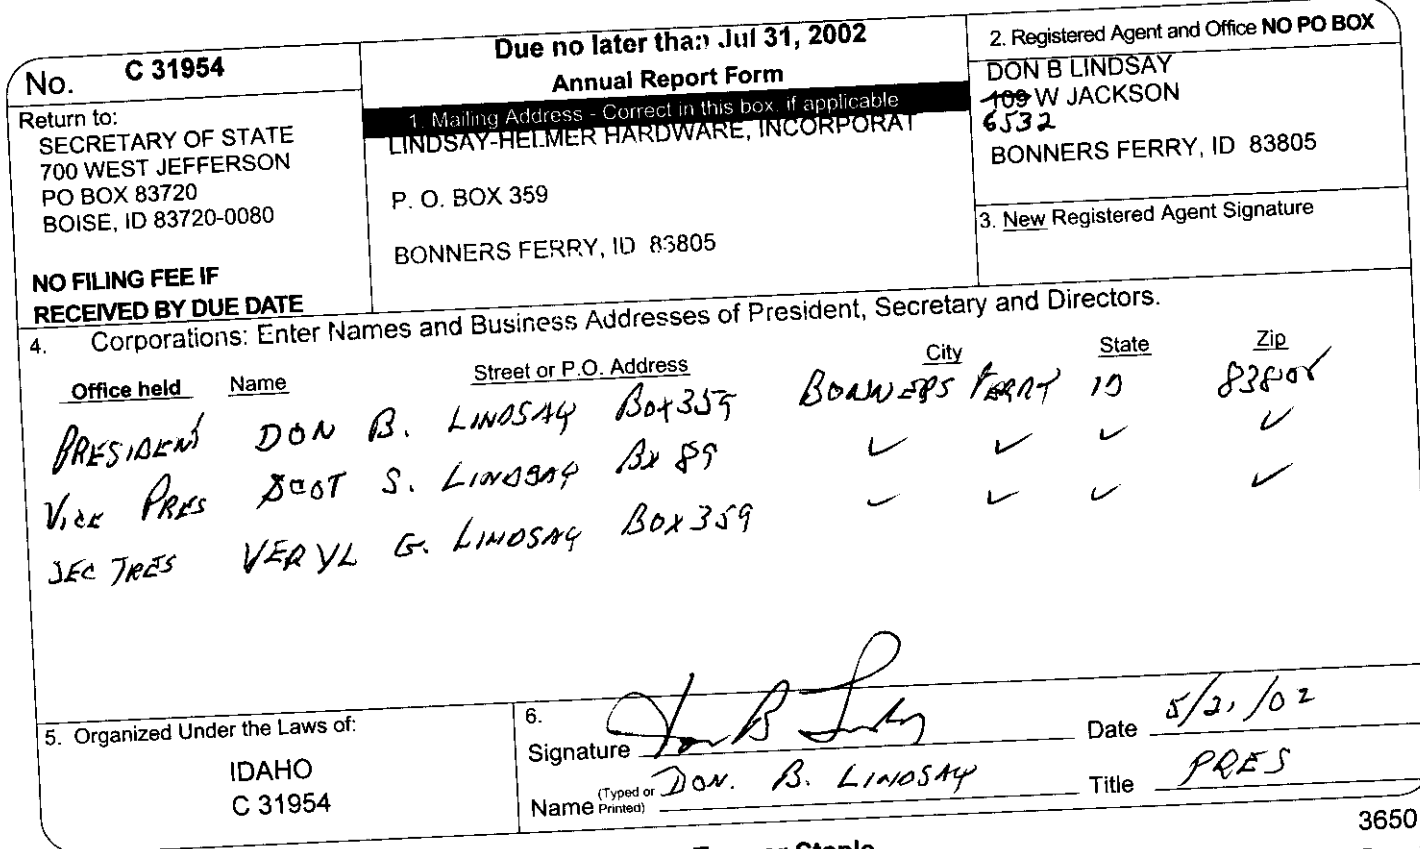 No. C 31954
Return to:
SECRETARY OF STATE
700 WEST JEFFERSON
PO BOX 83720
BOISE, ID 83720-0080
NO FILING FEE IF
RECEIVED BY DUE DATE
Due no later than Jul 31, 2002
Annual Report Form
1. Mailing Address - Correct in this box, if applicable
LINDSAY-HELMER HARDWARE, INCORPORAT
P. O. BOX 359
BONNERS FERRY, ID 83805
2. Registered Agent and Office NO PO BOX
DON B LINDSAY
109 W JACKSON
6532
BONNERS FERRY, ID 83805
3. New Registered Agent Signature
4. Corporations: Enter Names and Business Addresses of President, Secretary and Directors.
Office held Name Street or P.O. Address City State Zip
PRESIDENT DON B. LINDSAY Box 359 BONNERS FERRY ID 83805
VICE PRES SCOT S. LINDSAY Bx 89 ✓ ✓ ✓ ✓
SEC TRES VERYL G. LINDSAY BOX 359 ✓ ✓ ✓ ✓
5. Organized Under the Laws of:
IDAHO
C 31954
6.
Signature Don B Lindsay Date 5/21/02
Name (Typed or Printed) DON. B. LINDSAY Title PRES
3650